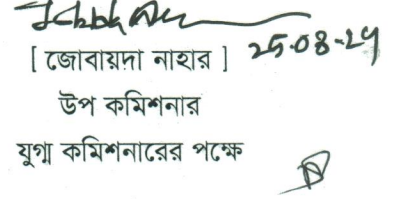 [ জোবায়দা নাহার ] 25-08-24
উপ কমিশনার
যুগ্ম কমিশনারের পক্ষে